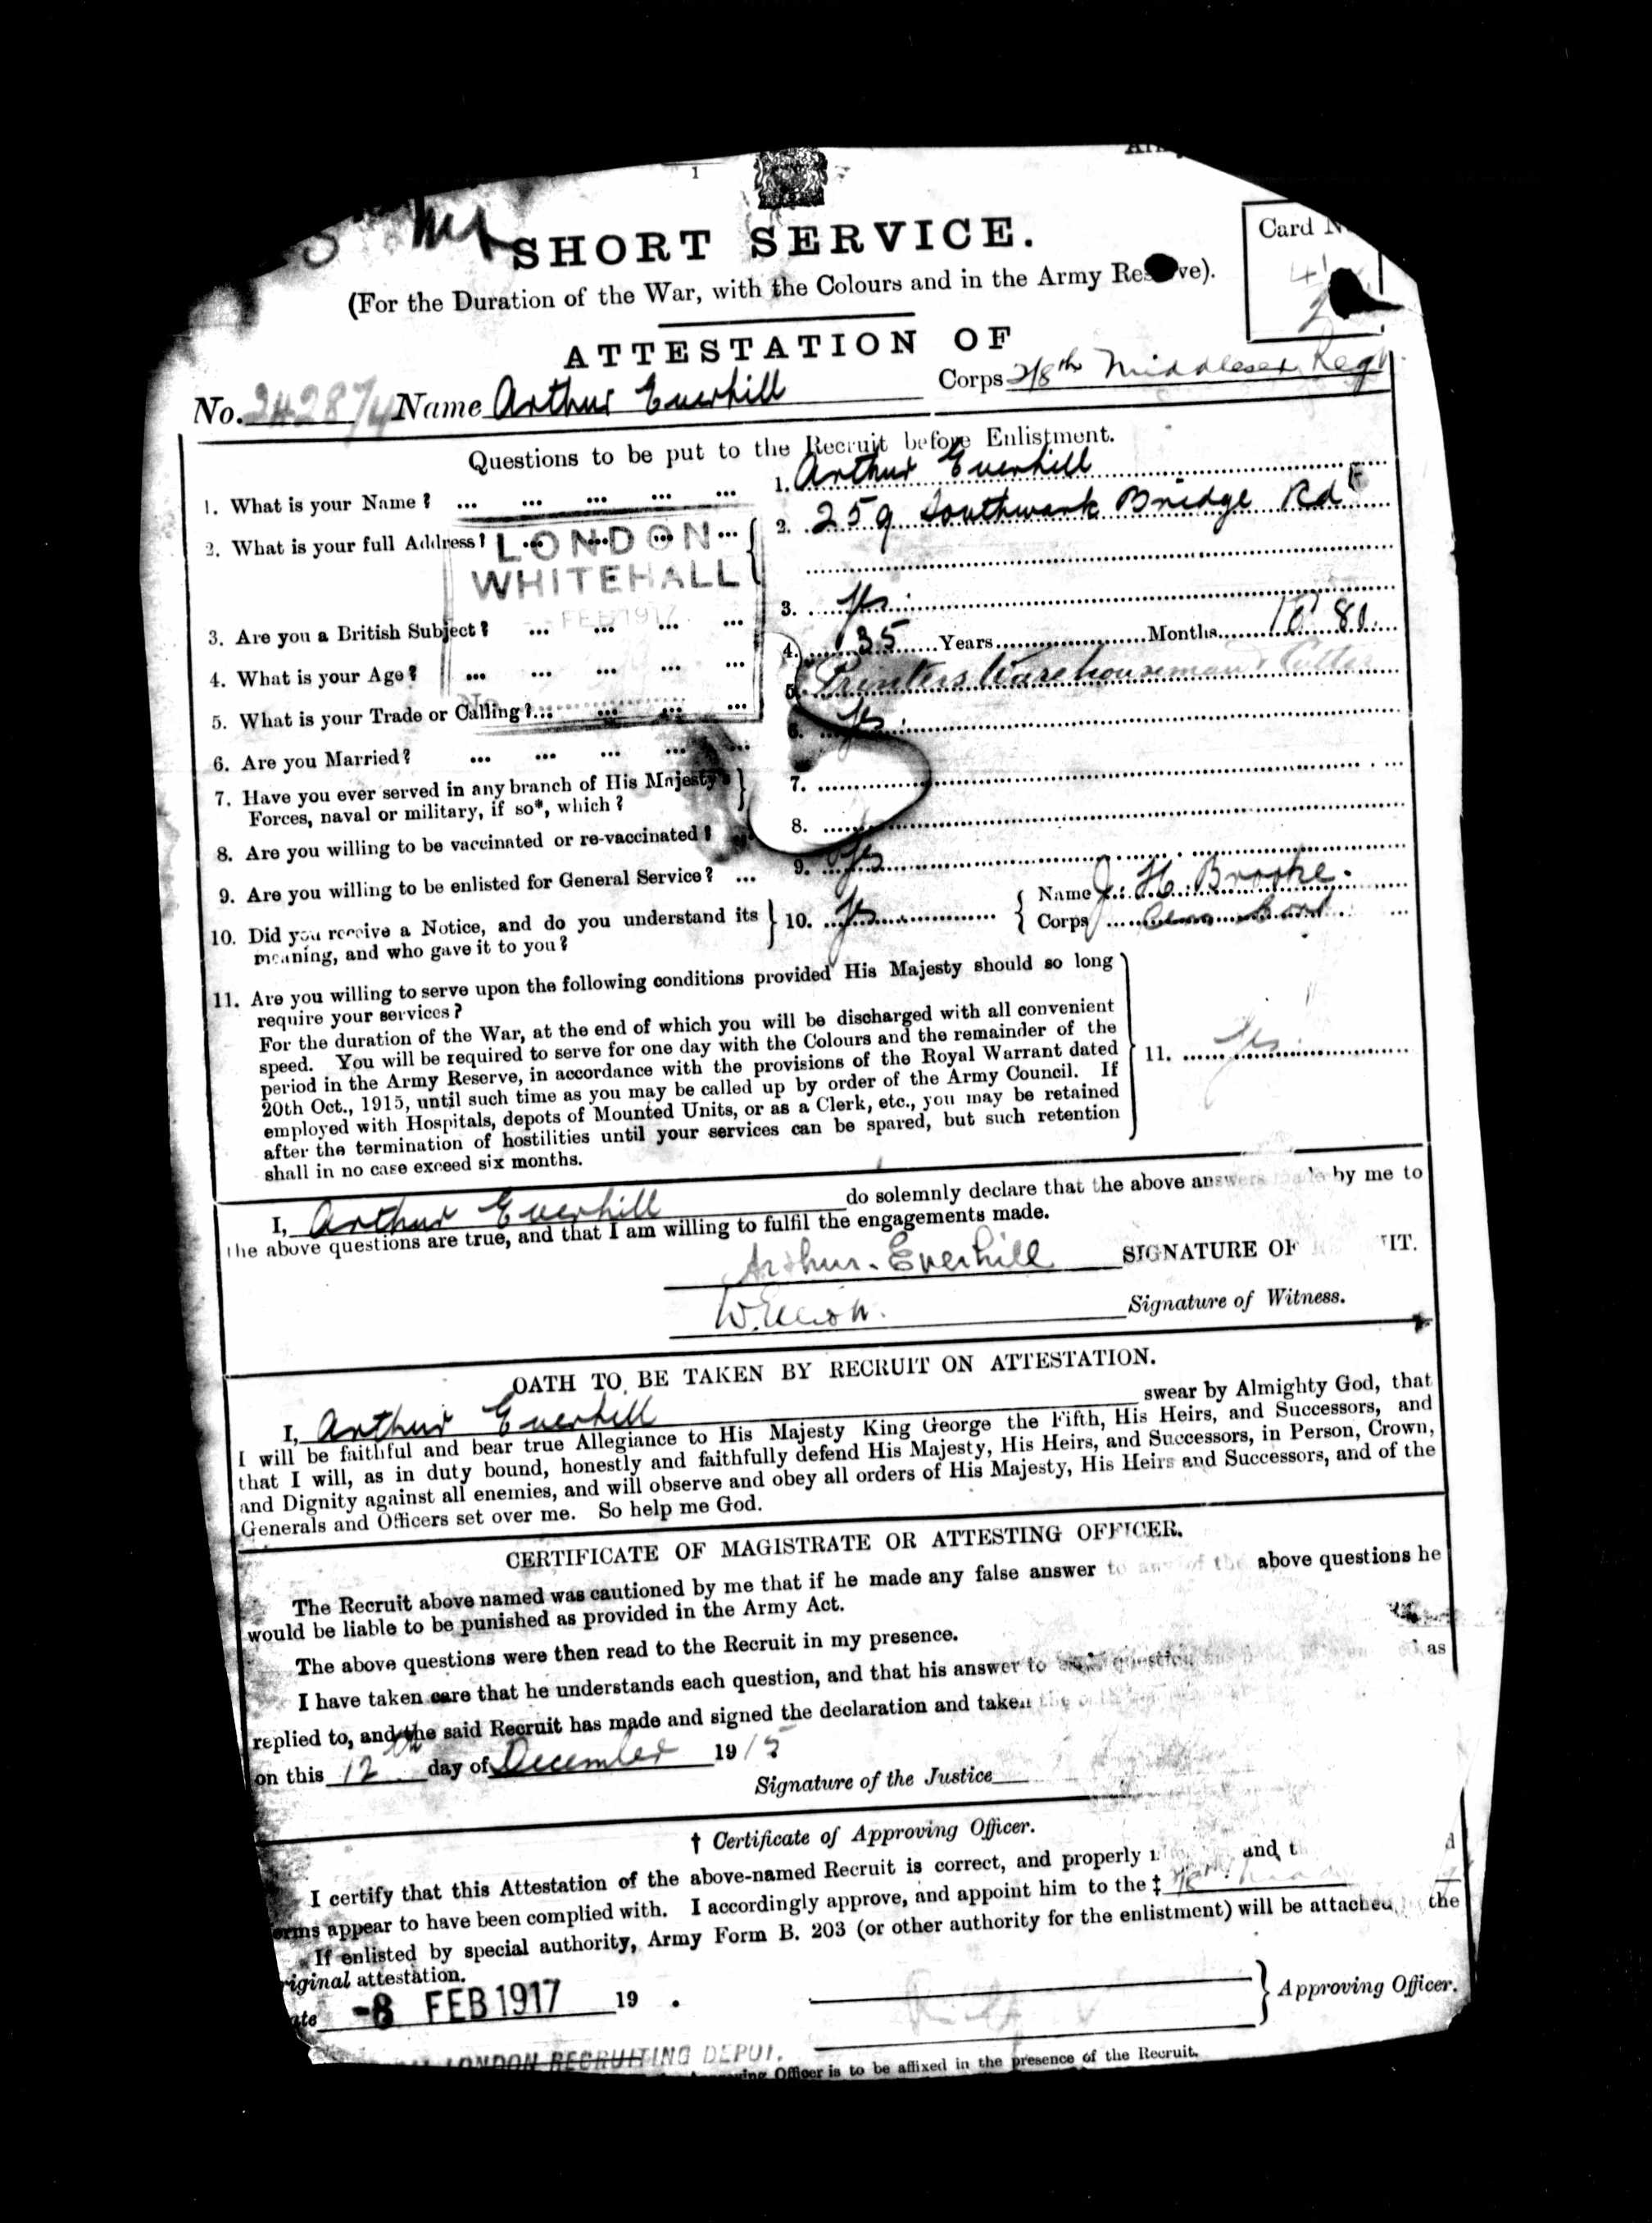 1
SHORT SERVICE.
Card
(For the Duration of the War, with the Colours and in the Army Reserve).
ATTESTATION OF
No. Name Arthur Everhill Corps 2/8th Middlesex Regt
Questions to be put to the Recruit before Enlistment.
1. What is your Name? ... ... ... ... ... 1. Arthur Everhill
2. What is your full Address? 2. 259 Southwark Bridge Rd
LONDON
WHITEHALL
FEB 1917
3. Are you a British Subject? ... ... ... ... 3. Yes.
4. What is your Age? ... ... ... ... ... 4. 35 Years Months
5. What is your Trade or Calling? ... ... ... ... 5. Printers Warehouseman & Cutter
6. Are you Married? ... ... ... ... ... 6. Yes.
7. Have you ever served in any branch of His Majesty's
Forces, naval or military, if so*, which? 7.
8. Are you willing to be vaccinated or re-vaccinated? 8.
9. Are you willing to be enlisted for General Service? ... 9. Yes
10. Did you receive a Notice, and do you understand its
meaning, and who gave it to you? 10. Yes Name J. H. Brooke.
Corps
11. Are you willing to serve upon the following conditions provided His Majesty should so long
require your services?
For the duration of the War, at the end of which you will be discharged with all convenient
speed. You will be required to serve for one day with the Colours and the remainder of the
period in the Army Reserve, in accordance with the provisions of the Royal Warrant dated
20th Oct., 1915, until such time as you may be called up by order of the Army Council. If
employed with Hospitals, depots of Mounted Units, or as a Clerk, etc., you may be retained
after the termination of hostilities until your services can be spared, but such retention
shall in no case exceed six months.
11. Yes
I, Arthur Everhill do solemnly declare that the above answers made by me to
the above questions are true, and that I am willing to fulfil the engagements made.
Arthur. Everhill SIGNATURE OF
Signature of Witness.
OATH TO BE TAKEN BY RECRUIT ON ATTESTATION.
I, Arthur Everhill swear by Almighty God, that
I will be faithful and bear true Allegiance to His Majesty King George the Fifth, His Heirs, and Successors, and
that I will, as in duty bound, honestly and faithfully defend His Majesty, His Heirs, and Successors, in Person, Crown,
and Dignity against all enemies, and will observe and obey all orders of His Majesty, His Heirs and Successors, and of the
Generals and Officers set over me. So help me God.
CERTIFICATE OF MAGISTRATE OR ATTESTING OFFICER.
The Recruit above named was cautioned by me that if he made any false answer to any of the above questions he
would be liable to be punished as provided in the Army Act.
The above questions were then read to the Recruit in my presence.
I have taken care that he understands each question, and that his answer to question as
replied to, and the said Recruit has made and signed the declaration and taken the
on this 12th day of December 1915
Signature of the Justice
† Certificate of Approving Officer.
I certify that this Attestation of the above-named Recruit is correct, and properly and
appear to have been complied with. I accordingly approve, and appoint him to the ‡
If enlisted by special authority, Army Form B. 203 (or other authority for the enlistment) will be attached the
original attestation.
-8 FEB 1917 19 . Approving Officer.
LONDON RECRUITING DEPOT.
Officer is to be affixed in the presence of the Recruit.